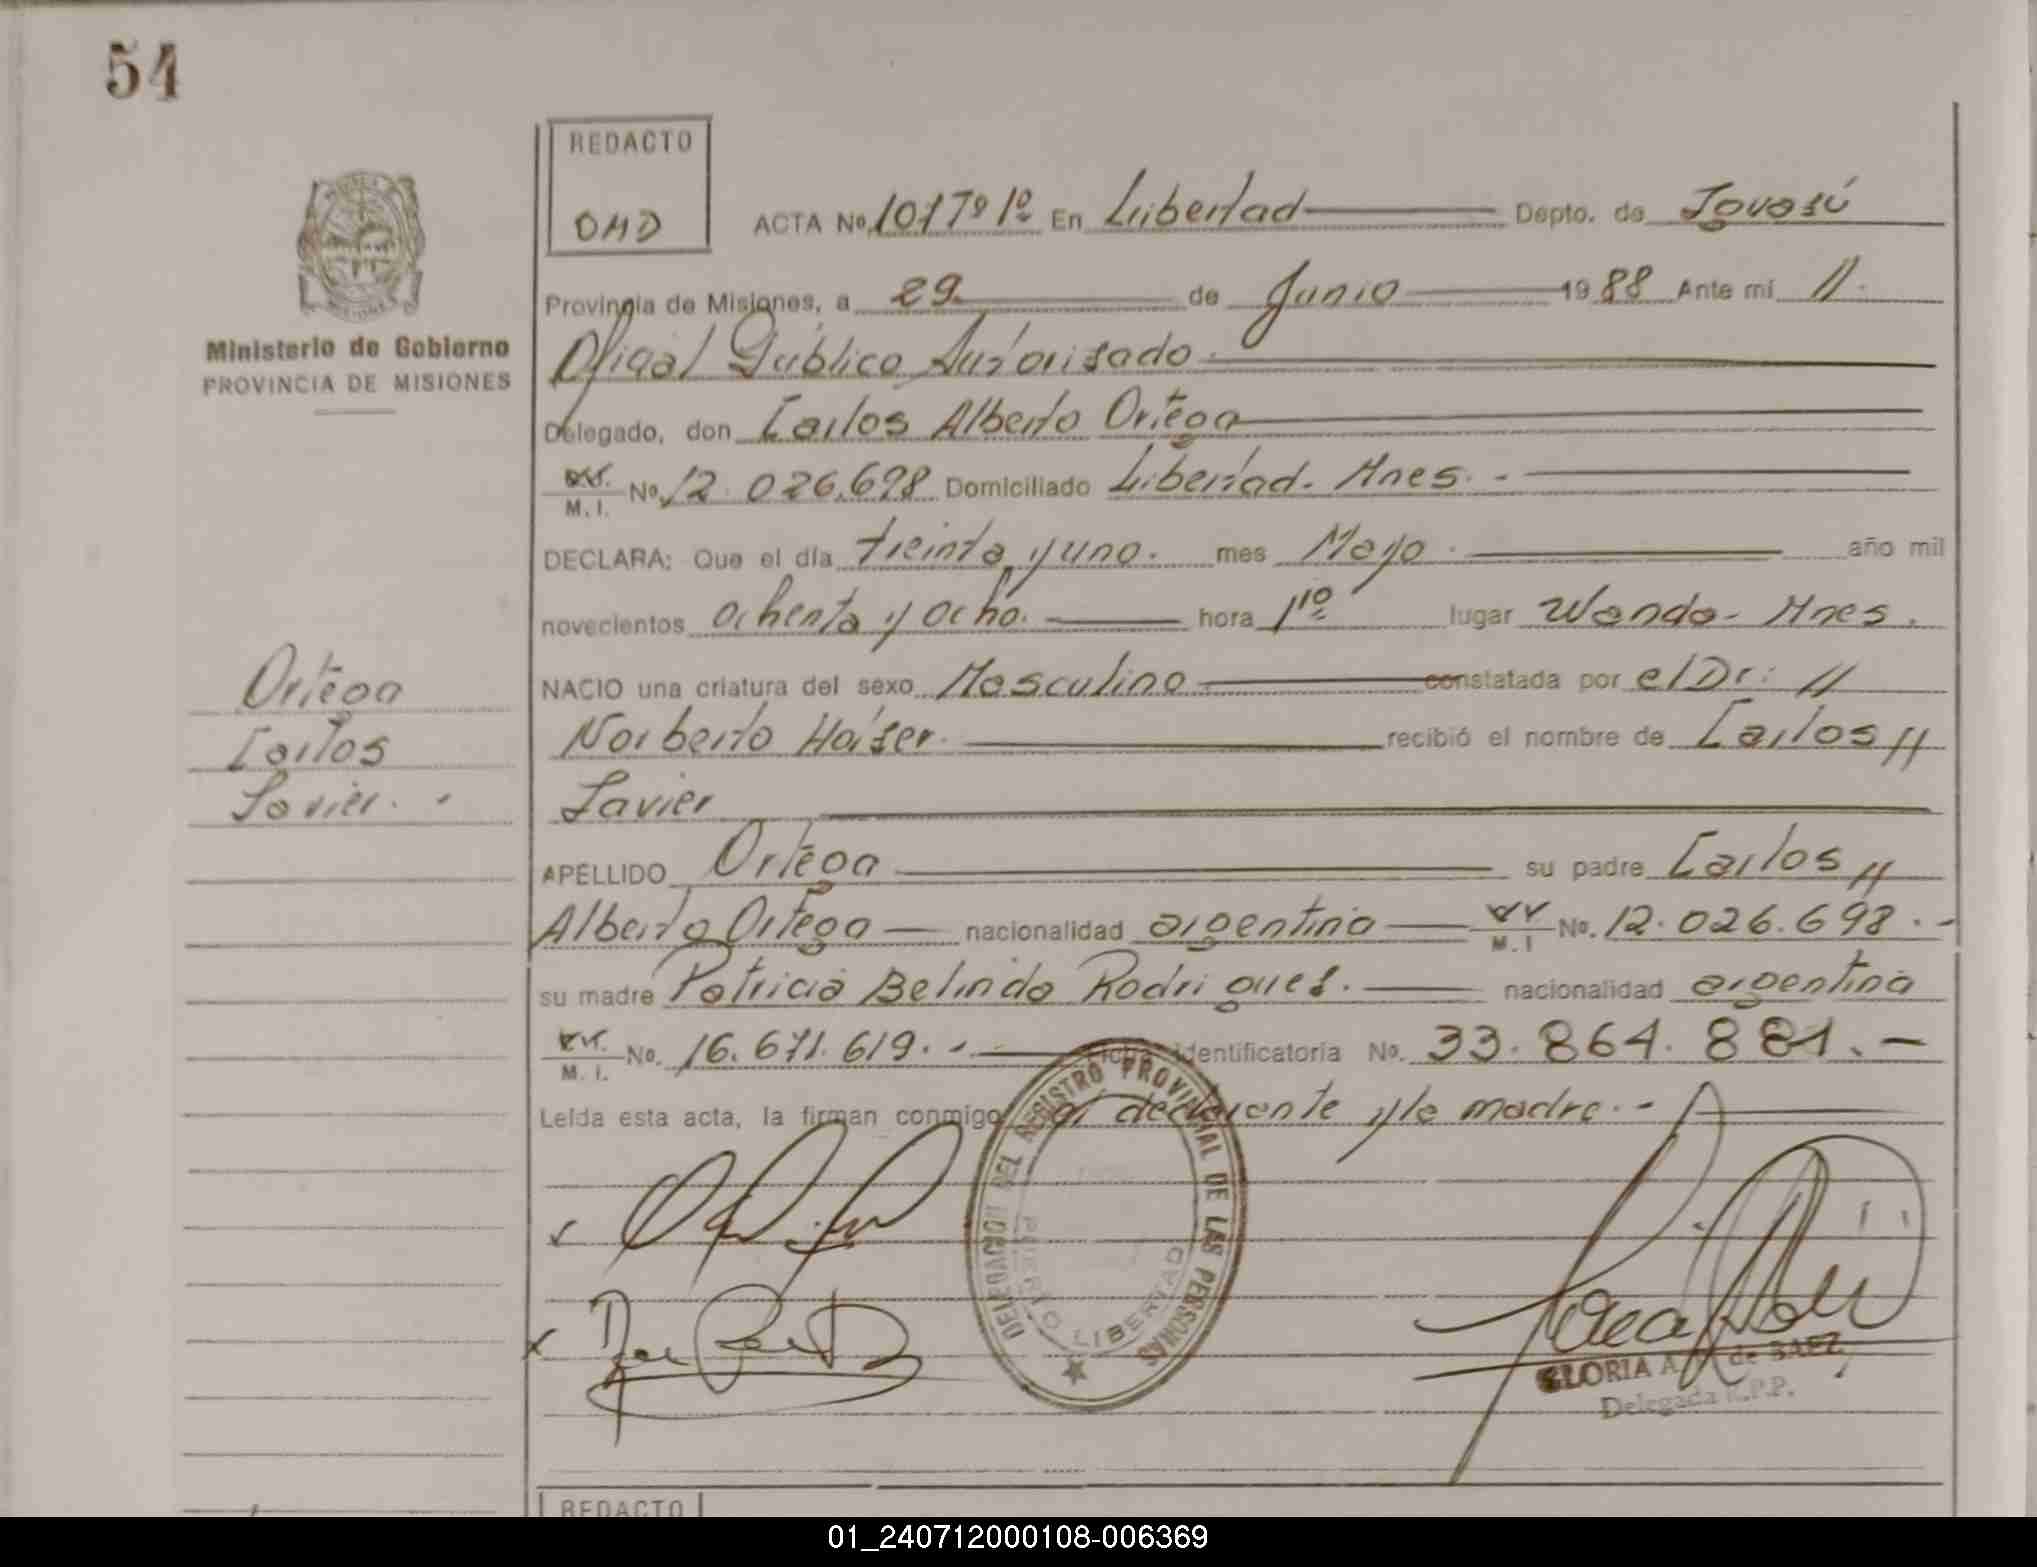 54
REDACTO
OMD
ACTA No. 101 Tº 1º En Libertad Depto. de Iguasú
Provincia de Misiones, a 29 de Junio 1988 Ante mí //.
Ministerio de Gobierno
PROVINCIA DE MISIONES
Oficial Público Autorisado.
Delegado, don Carlos Alberto Ortega
M. I. No. 12.026.698 Domiciliado Libertad. Mnes. -
DECLARA: Que el día treinta y uno. mes Mayo. año mil
novecientos ochenta y ocho. hora 1 10 lugar Wanda - Mnes.
NACIO una criatura del sexo Masculino constatada por el Dr: //
Norberto Haiser. recibió el nombre de Carlos //
Javier
Ortega
Carlos
Javier. -
APELLIDO Ortega su padre Carlos //
Alberto Ortega nacionalidad argentina M. I No. 12.026.698. -
su madre Patricia Belinda Rodrigues. nacionalidad argentina
M. I. No. 16.671.619. - Ficha identificatoria No. 33.864.881. -
Leída esta acta, la firman conmigo el declarante y la madre. -
DELEGACION DEL REGISTRO PROVINCIAL DE LAS PERSONAS
PUERTO LIBERTAD
GLORIA A. de BAEZ
Delegada R.P.P.
REDACTO
01_240712000108-006369